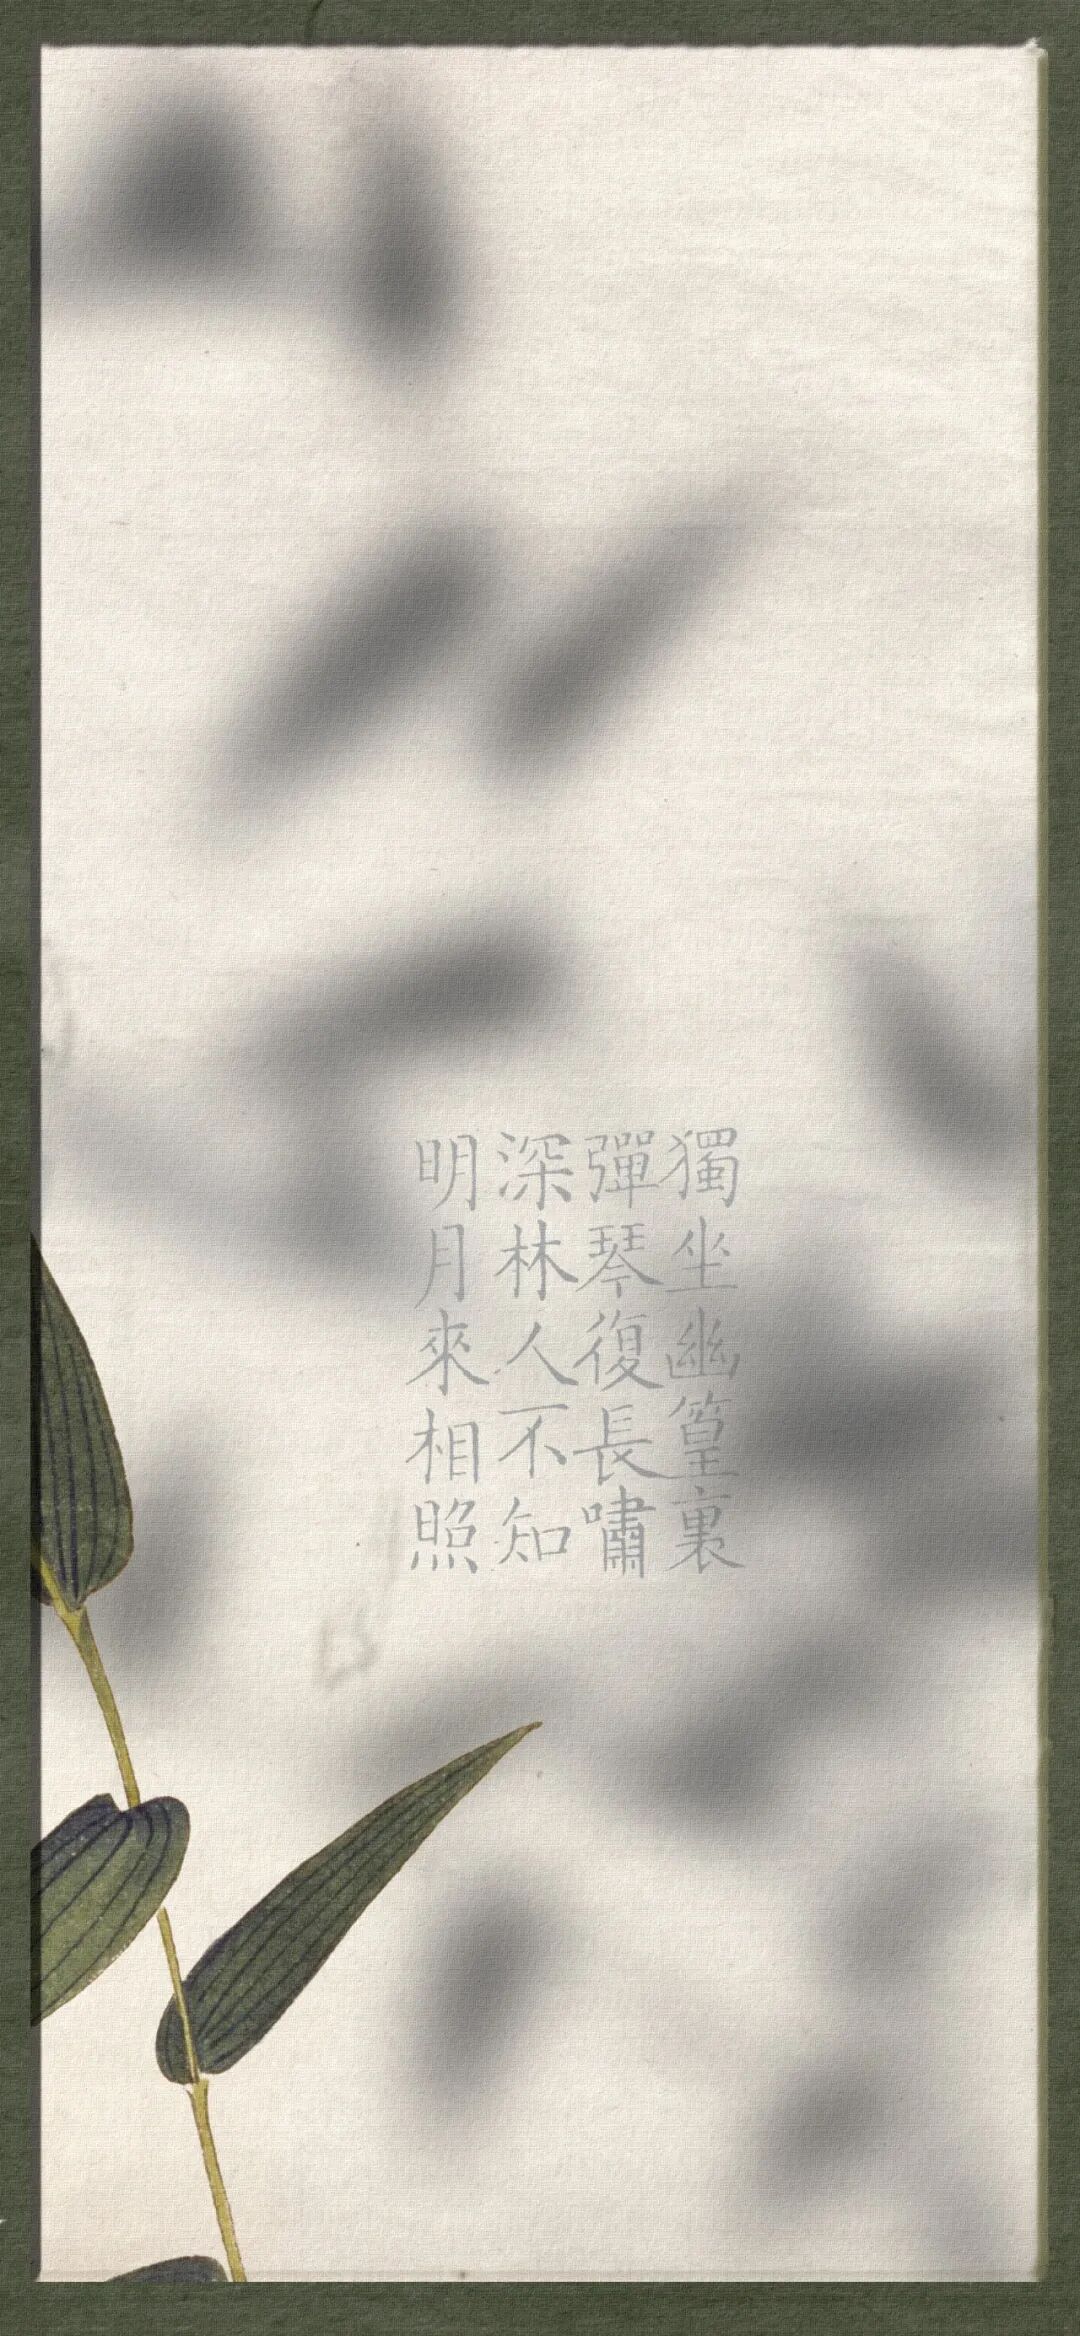 獨坐幽篁裏
彈琴復長嘯
深林人不知
明月來相照